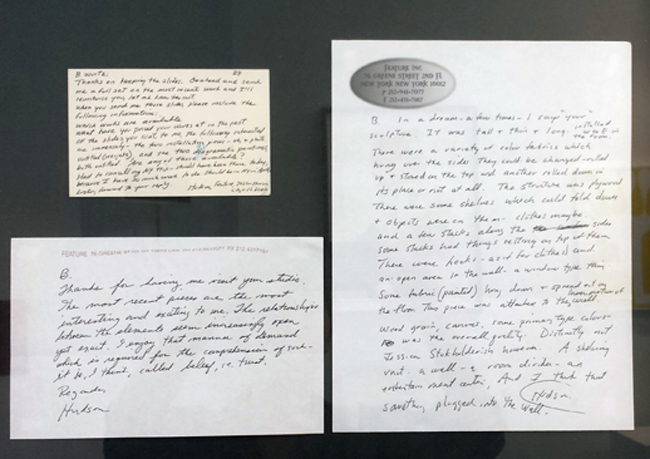 B wrote.
Thanks on keeping the slides. Go ahead and send
me a full set on the most recent work and I'll
reimburse you, let me know the cost
when you send me those slides please include the
following information:
which works are available
what have you priced your works at in the past
of the slides you sent, to me the following interested
me immensely - the two installation pieces
untitled and the two diagramatic paintings
both untitled Are any of those available?
Had to cancel my trip - should have been there today,
because I have so much more to do
looking forward to your reply. Hudson, Feature
FEATURE
B.
Thanks for having me visit your studio.
The most recent pieces are the most
interesting and exciting to me. The relationships
between the elements seem increasingly open
yet exact. I enjoy that manner of demand
which is required for the comprehension of such-
it be, I think, called belief, i.e. trust.
Regards,
Hudson
FEATURE INC
76 GREENE STREET 2ND FL
NEW YORK NEW YORK 10012
P 212-941-7077
F 212-431-7187
B. In a dream - a few times - I saw "your" installed
sculpture. It was tall + thin + long.
There were a variety of color fabrics which
hung over the sides They could be changed - rolled
up + stored on the top and another rolled down in
its place or not at all. The structure was plywood
There were some shelves which could fold down
+ objects were on them - clothes maybe
and a few stacks along the sides
some stacks had things resting on top of them
There were hooks - as if for clothes and
an open area in the wall - a window type thing
Some fabric (painted) hung down + spread out on
the floor This piece was attached to the wall.
Wood grain, canvas, some primary type colors -
was the overall quality. Distinctly not
Jessica Stokholderish however. A shelving
unit - a wall - a room divider - an
entertainment center, And I think that
something plugged into the wall.
Hudson